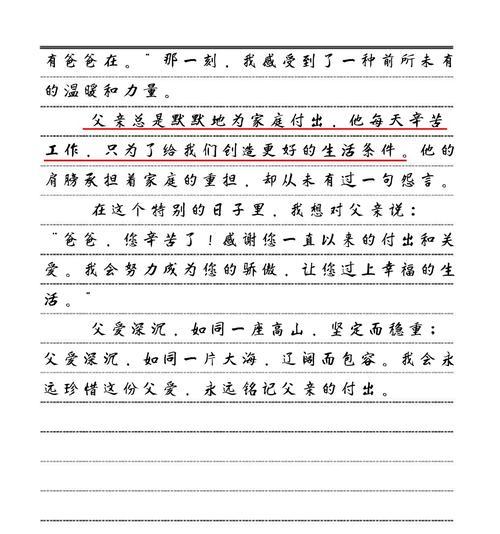 有爸爸在。"那一刻，我感受到了一种前所未有
的温暖和力量。
父亲总是默默地为家庭付出，他每天辛苦
工作，只为了给我们创造更好的生活条件。他的
肩膀承担着家庭的重担，却从未有过一句怨言。
在这个特别的日子里，我想对父亲说：
"爸爸，您辛苦了！感谢您一直以来的付出和关
爱。我会努力成为您的骄傲，让您过上幸福的生
活。"
父爱深沉，如同一座高山，坚定而稳重；
父爱深沉，如同一片大海，辽阔而包容。我会永
远珍惜这份父爱，永远铭记父亲的付出。